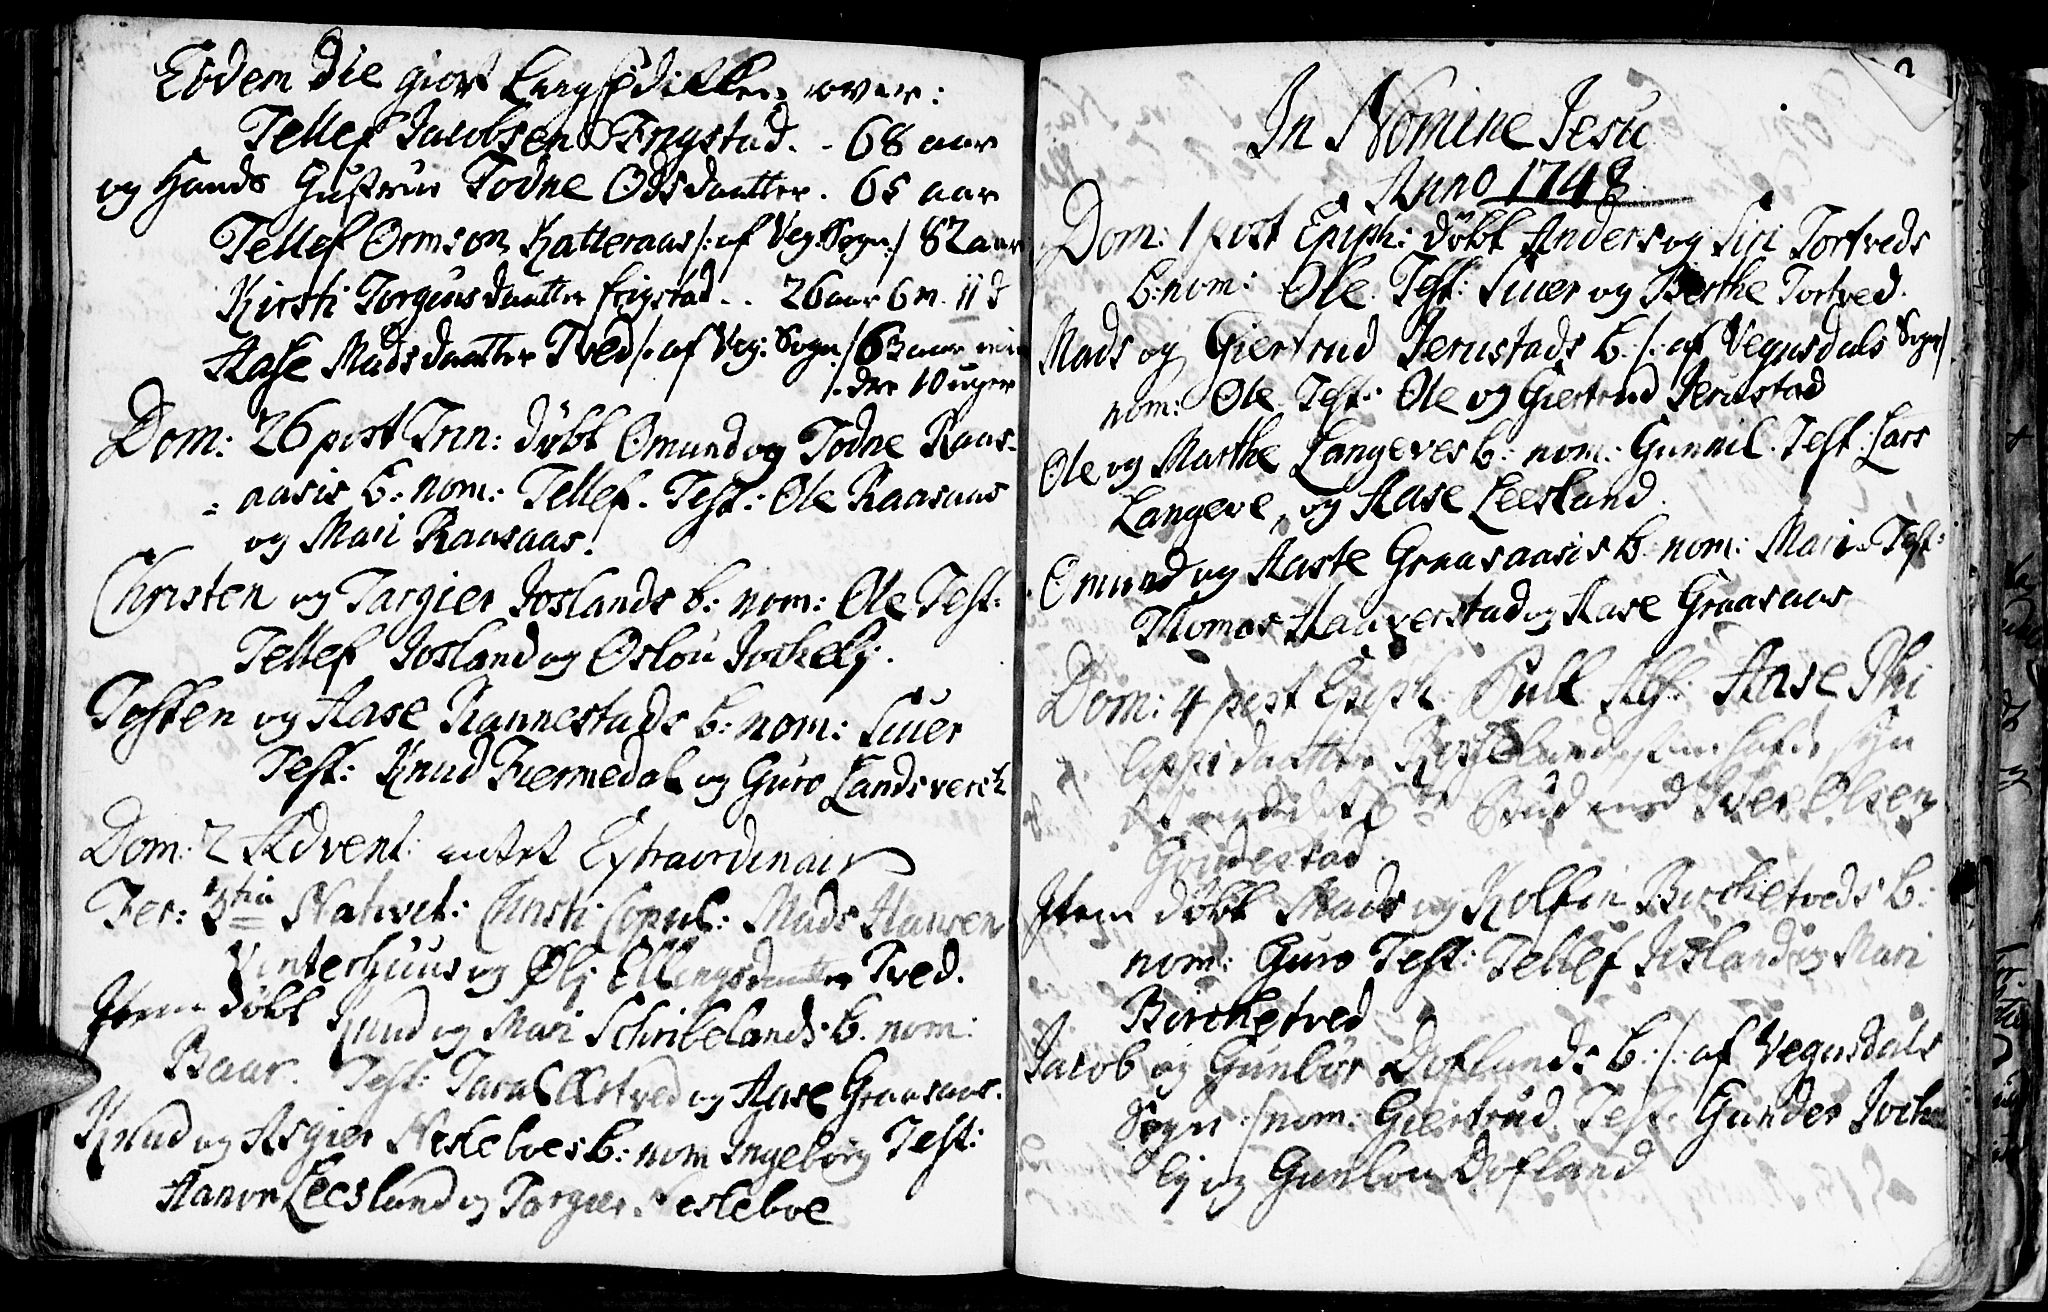 Eodem Die giort Liigprædikken over:
Tellef Jacobsen Frystad. - 68 aar
og Hands Hustrue Todne Odsdaatter. 65 aar
Tellef Ormson Katteraas /: af Veg: Sogn :/ 82 aar
Kirsti Torgiusdaatter frigstad. . 26 aar 6 m. 11 d
Aase Madsdaatter Tved /: af Veg: Sogn :/ 63 aar min
/. dre 10 uger
Dom: 26 post Trin: døbt Omund og Todne Raas-
= aasis b: nom: Tellef. Test: Ole Raasaas
og Mari Raasaas.
Christen og Targier Joslands b: nom: Ole Test:
Tellef Josland og Oslou Jochelj.
Tosten og Aase Rannestads b: nom: Siuer
Test: Knud Fiermedal og Guro Landsverck
Dom: 2 Advent: intet Extraordinair
Fer: 3tia Nativit: Christi Copul: Mads Hansen
Vinterhuus og Ølj Ellingsdaatter Tved.
Item døbt Knud og Mari Schribelands b. nom:
Baar. Test: Taral Østved og Aase Graasaas.
Knud og Asgier Hesleboes b: nom Ingebörg Test:
Haavor Leesland og Torgier Hesleboe
In Nomine Jesu
Anno 1748.
Dom: 1 post Epiph: döbt Anders og Siri Tortveds
b: nom: Ole. Test: Siuer og Berthe Tortved.
Mads og Giertrud Jerustads b. /: af Vegusdals Sogn/
nom: Ole. Test: Ole og Giertrud Jerustad
Ole og Marthe Langeves b: nom: Gunnil. Test: Lars
Langeve, og Aase Leesland.
Omund og Aaste Graasaasis b. nom: Mari. Test:
Thomas Haaverstad og Aase Graasaas
Dom: 4 post Epiph: Publ. Abs: Aase Phi
med Iver Olsen
Item døbt Mads og Kolfin Birchetveds b:
nom: Guro Test: Tellef Josland og Mari
Birchetved
Jacob og Gunlör Doflands b: /: af Vegusdals
Sogn :/ nom: Giertrud. Test Gunder Joche
lj og Gunlou Dofland